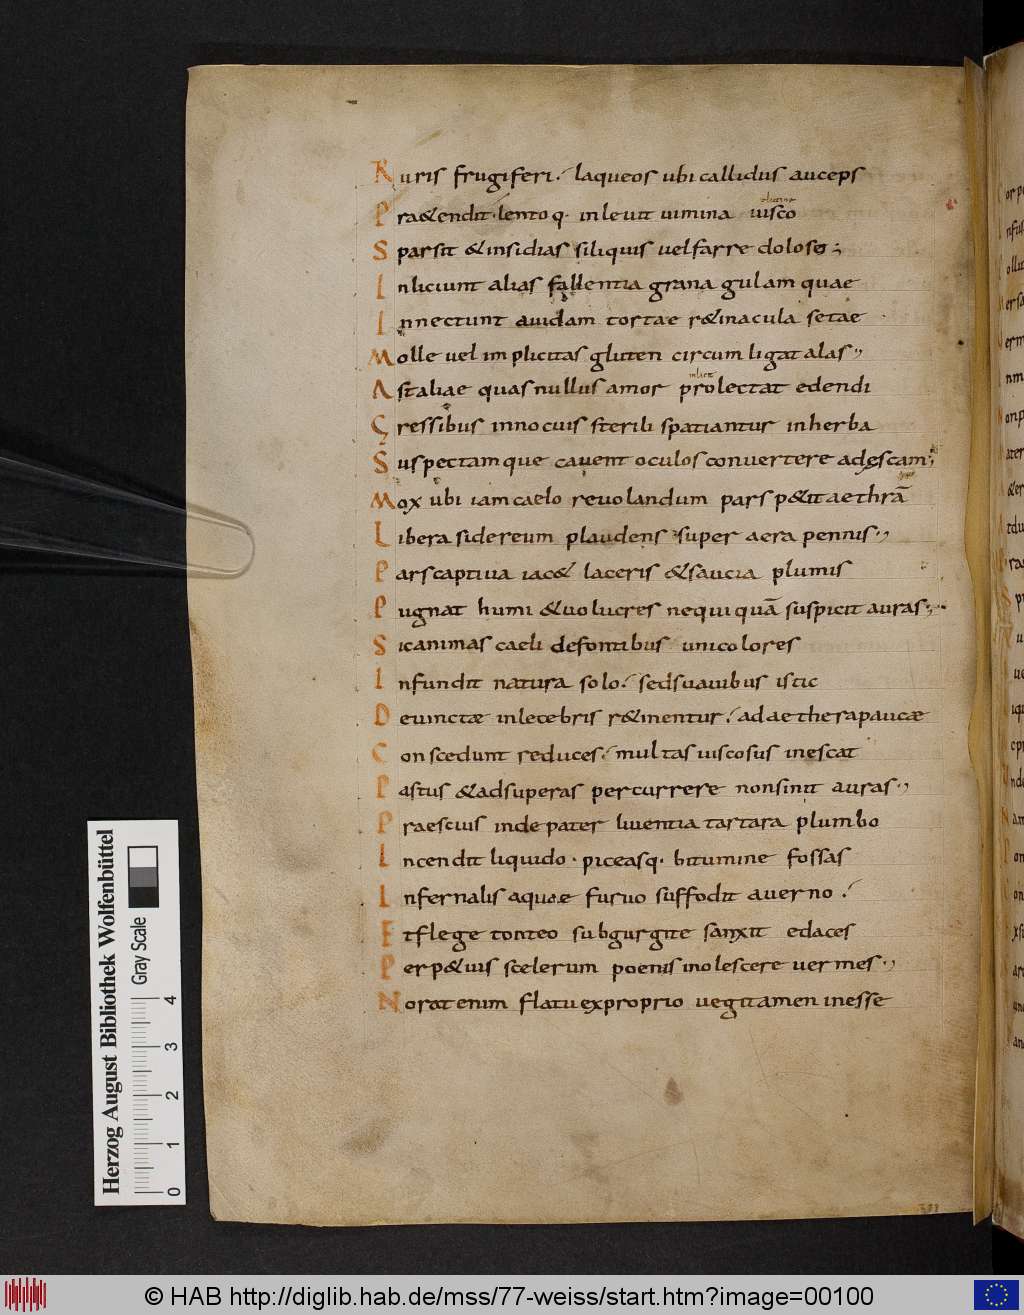 Ruris frugiferi. laqueos ubi callidus auceps
Pra&endit. lento q. inleuit uimina uisco
Sparsit & insidias siliquis uel farre doloso;
Inliciunt alias fallentia grana gulam quae
Innectunt auidam tortae r&inacula setae
Molle uel implicitas gluten circum ligat alas;
Ast aliae quas nullus amor prolectat edendi
inlicit
Gressibus innocuis sterili spatiantur in herba
Suspectamque cauent oculos conuertere ad escam;
Mox ubi iam caelo reuolandum pars p&it aethrā
Libera sidereum plaudens super aera pennis;
Pars captiua iac& laceris & saucia plumis
Pugnat humi & uolucres nequiquā suspicit auras;
Sic animas caeli de fontibus unicolores
Infundit natura solo. sed suauibus istic
Deuinctæ inlecebris r&inentur. ad aethera paucæ
Conscedunt reduces. multas uiscosus inescat
Pastus & ad superas percurrere non sinit auras;
Praescius inde pater liuentia tartara plumbo
Incendit liquido. piceasq. bitumine fossas
Infernalis aquae furuo suffodit auerno.
Et flegetonteo sub gurgite sanxit edaces
Perp&uis scelerum poenis inolescere uermes;
Norat enim flatu ex proprio uegitamen inesse
Herzog August Bibliothek Wolfenbüttel
Gray Scale
0 1 2 3 4
© HAB http://diglib.hab.de/mss/77-weiss/start.htm?image=00100